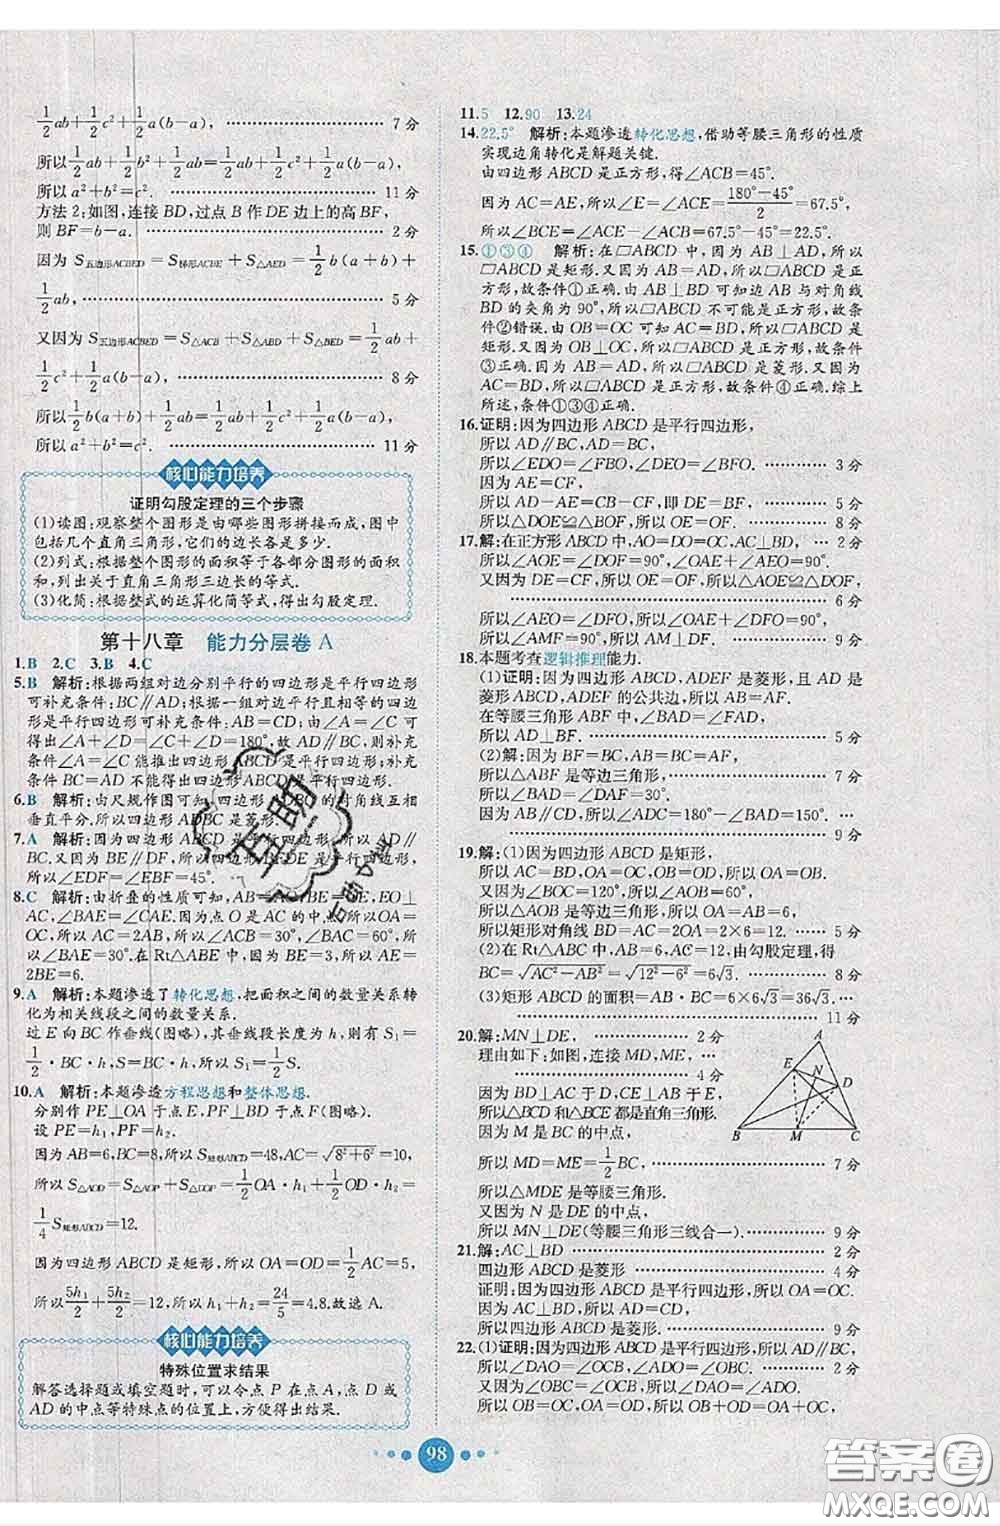 1/2ab+1/2c²+1/2a(b−a), ………… 7分
所以1/2ab+1/2b²+1/2ab=1/2ab+1/2c²+1/2a(b−a),
所以a²+b²=c². ………… 11分
方法2:如图,连接BD,过点B作DE边上的高BF,
则BF=b−a. ………… 2分
因为S五边形ACBED=S梯形ACBE+S△AED=1/2b(a+b)+
1/2ab, ………… 5分
又因为S五边形ACBED=S△ACB+S△ABD+S△BED=1/2ab+
1/2c²+1/2a(b−a), ………… 8分
所以1/2b(a+b)+1/2ab=1/2ab+1/2c²+1/2a(b−a),
所以a²+b²=c². ………… 11分
核心能力培养
证明勾股定理的三个步骤
(1)读图:观察整个图形是由哪些图形拼接而成,图中
包括几个直角三角形,它们的边长各是多少.
(2)列式:根据整个图形的面积等于各部分图形的面积
和,列出关于直角三角形三边长的等式.
(3)化简:根据整式的运算化简等式,得出勾股定理.
第十八章 能力分层卷A
1.B 2.C 3.B 4.C
5.B 解析:根据两组对边分别平行的四边形是平行四边形
可补充条件:BC∥AD;根据一组对边平行且相等的四边
形是平行四边形可补充条件:AB=CD;由∠A=∠C可
得出∠A+∠D=∠C+∠D=180°,故AD∥BC,则补充
条件∠A=∠C能推出四边形ABCD是平行四边形;补充
条件BC=AD不能得出四边形ABCD是平行四边形.
6.B 解析:由尺规作图可知,四边形ADBC的对角线互相
垂直平分,所以四边形ADBC是菱形.
7.A 解析:因为四边形ABCD是平行四边形,所以AD∥
BC.又因为BE∥DF,所以四边形BEDF是平行四边形,
所以∠EDF=∠EBF=45°.
8.C 解析:由折叠的性质可知,∠B=∠AOE=90°,EO⊥
AC,∠BAE=∠CAE.因为点O是AC的中点,所以OA=
OC,所以AE=CE,所以∠OAE=∠OCE=∠BAE,所
以∠BAE=30°.在Rt△ABE中,因为BE=3,所以AE=
2BE=6.
9.A 解析:本题渗透了转化思想,把面积之间的数量关系转
化为相关线段之间的数量关系.
过E向BC作垂线(图略),其垂线段长度为h,则有S₁=
1/2·BC·h,S=BC·h,所以S₁=1/2S.
10.A 解析:本题渗透方程思想和整体思想.
分别作PE⊥OA于点E,PF⊥BD于点F(图略).
设PE=h₁,PF=h₂,
因为AB=6,BC=8,所以S矩形ABCD=48,AC=√(8²+6²)=10,
所以S△AOD=S△AOP+S△DOP=1/2OA·h₁+1/2OD·h₂=
1/4S矩形ABCD=12.
因为四边形ABCD是矩形,所以OA=OD=1/2AC=5,
所以5h₁/2+5h₂/2=12,所以h₁+h₂=24/5=4.8.故选A.
核心能力培养
特殊位置求结果
解答选择题或填空题时,可以令点P在点A,点D或
AD的中点等特殊点的位置上,方便得出结果.
11.5 12.90 13.24
14.22.5° 解析:本题渗透转化思想,借助等腰三角形的性质
实现边角转化是解题关键.
由四边形ABCD是正方形,得∠ACB=45°.
因为AC=AE,所以∠E=∠ACE=(180°−45°)/2=67.5°,
所以∠BCE=∠ACE−∠ACB=67.5°−45°=22.5°.
15.①③④ 解析:在▱ABCD中,因为AB⊥AD,所以
▱ABCD是矩形.又因为AB=AD,所以▱ABCD是正方
形,故条件①正确.由AB⊥BD可知边AB与对角线
BD的夹角为90°,所以▱ABCD不可能是正方形,故条
件②错误.由OB=OC可知AC=BD,所以▱ABCD是矩
形.又因为OB⊥OC,所以▱ABCD是正方形,故条件
③正确.因为AB=AD,所以▱ABCD是菱形.又因为
AC=BD,所以▱ABCD是正方形,故条件④正确.综上
所述,条件①③④正确.
16.证明:因为四边形ABCD是平行四边形,
所以AD∥BC,AD=BC,
所以∠EDO=∠FBO,∠DEO=∠BFO. ………… 3分
因为AE=CF,
所以AD−AE=CB−CF,即DE=BF, ………… 5分
所以△DOE≌△BOF,所以OE=OF. ………… 8分
17.解:在正方形ABCD中,AO=DO=OC,AC⊥BD, … 2分
所以∠AOE=∠DOF=90°,∠OAE+∠AEO=90°.
又因为DE=CF,所以OE=OF,所以△AOE≌△DOF,
………… 6分
所以∠OAE=∠ODF,所以∠ODF+∠AEO=90°,
所以∠AMF=90°. ………… 8分
18.本题考查逻辑推理能力.
(1)证明:因为四边形ABCD,ADEF是菱形,且AD是
菱形ABCD,ADEF的公共边,所以AB=AF.
在等腰三角形ABF中,∠BAD=∠FAD,
所以AD⊥BF. ………… 5分
(2)解:因为BF=BC,AB=BC=AF,
所以△ABF是等边三角形, ………… 7分
所以∠BAD=∠DAF=30°.
因为AB∥CD,所以∠ADC=180°−∠BAD=150°.
………… 9分
19.解:(1)因为四边形ABCD是矩形,
所以AC=BD,AO=OC,OB=OD,所以AO=OB.
又因为∠BOC=120°,所以∠AOB=60°,
所以△AOB是等边三角形,所以OA=AB=6,
所以矩形对角线BD=AC=2OA=2×6=12. ………… 5分
(2)在Rt△ABC中,AB=6,AC=12,由勾股定理,得
BC=√(AC²−AB²)=√(12²−6²)=6√3. ………… 8分
(3)矩形ABCD的面积=AB·BC=6×6√3=36√3.
………… 11分
20.解:MN⊥DE, ………… 2分
理由如下:如图,连接MD,ME, …
………… 4分
因为BD⊥AC于D,CE⊥AB于E,
所以△BCD和△BCE都是直角三角形.
因为M是BC的中点,
所以MD=ME=1/2BC, ………… 7分
所以△MDE是等腰三角形.
又因为N是DE的中点,
所以MN⊥DE(等腰三角形三线合一). ………… 9分
A
E
N
D
B
M
C
21.解:AC⊥BD ………… 2分
四边形ABCD是菱形 ………… 4分
证明:因为四边形ABCD是平行四边形,所以OA=OC.
因为AC⊥BD,所以AD=CD,
所以四边形ABCD是菱形. ………… 9分
22.(1)证明:因为四边形ABCD是平行四边形,所以AD∥BC,
所以∠DAO=∠OCB,∠ADO=∠OBC.
又因为∠OBC=∠OCB,所以∠DAO=∠ADO,
所以OB=OC,OA=OD,所以OB+OD=OA+OC,
98
互助
答案圈
MXQE.COM